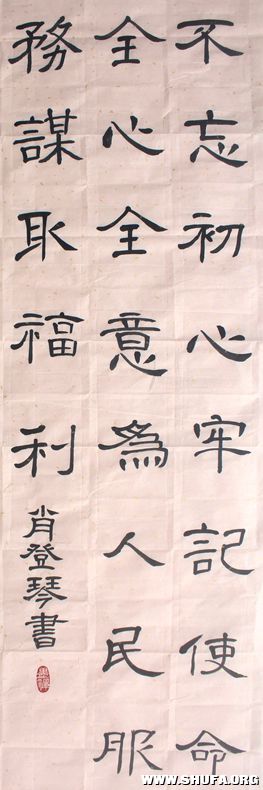 不忘初心牢記使命
全心全意為人民服
務謀取福利
肖登琴書
WWW.SHUFA.ORG